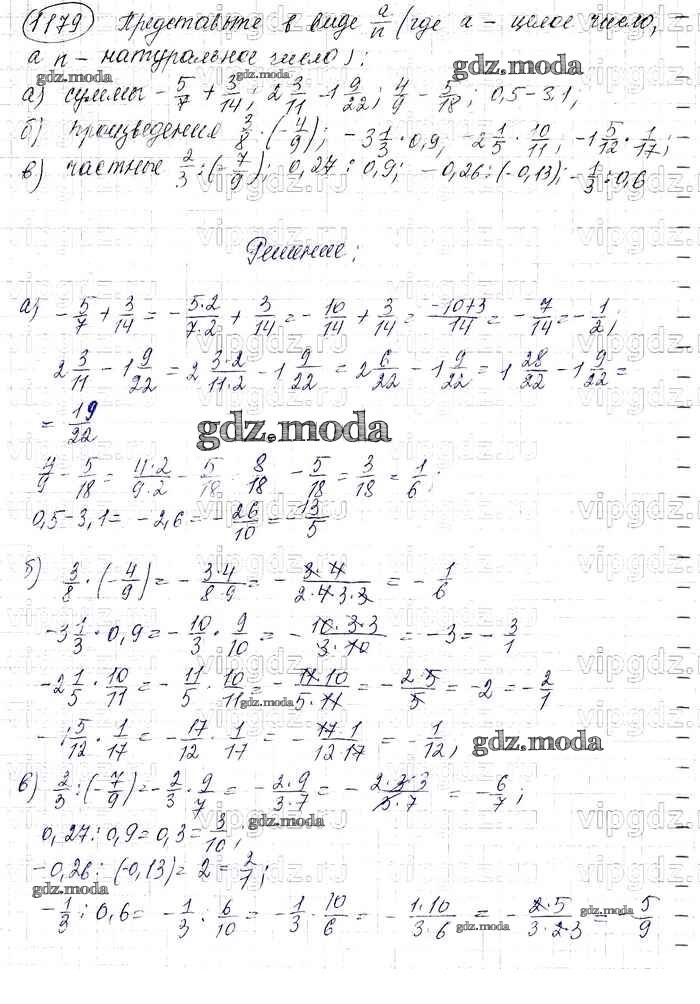 1179) Представьте в виде a/n (где a - целое число,
а n - натуральное число):
gdz.moda gdz.moda
а) суммы - 5/7 + 3/14; 2 3/11 - 1 9/22; 4/9 - 5/18; 0,5 - 3,1;
б) произведения 3/8 · (-4/9); -3 1/3 · 0,9; -2 1/5 · 10/11; -1 5/12 · 1/17;
в) частные 2/3 : (-7/9); 0,27 : 0,9; -0,26 : (-0,13); -1/3 : 0,6
Решение:
а) -5/7 + 3/14 = -5·2/7·2 + 3/14 = -10/14 + 3/14 = -10+3/14 = -7/14 = -1/2;
2 3/11 - 1 9/22 = 2 3·2/11·2 - 1 9/22 = 2 6/22 - 1 9/22 = 1 28/22 - 1 9/22 =
= 19/22
gdz.moda
4/9 - 5/18 = 4·2/9·2 - 5/18 8/18 - 5/18 = 3/18 = 1/6;
0,5 - 3,1 = -2,6 = -26/10 = -13/5
gdz.moda
б) 3/8 · (-4/9) = -3·4/8·9 = -3·4/2·4·3·3 = -1/6
-3 1/3 · 0,9 = -10/3 · 9/10 = -10·3·3/3·10 = -3 = -3/1
-2 1/5 · 10/11 = -11/5 · 10/11 = -11·10/5·11 = -2·5/5 = -2 = -2/1
gdz.moda
-1 5/12 · 1/17 = -17/12 · 1/17 = -17·1/12·17 = -1/12;
gdz.moda
в) 2/3 : (-7/9) = -2/3 · 9/7 = -2·9/3·7 = -2·3·3/3·7 = -6/7;
0,27 : 0,9 = 0,3 = 3/10;
gdz.moda
-0,26 : (-0,13) = 2 = 2/1;
gdz.moda
-1/3 : 0,6 = -1/3 : 6/10 = -1/3 · 10/6 = -1·10/3·6 = -2·5/3·2·3 = -5/9
gdz.moda gdz.moda gdz.moda